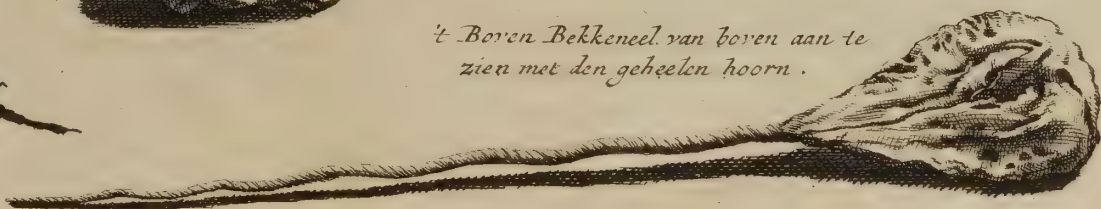 't Boven Bekkeneel van boven aan te
zien met den geheelen hoorn.